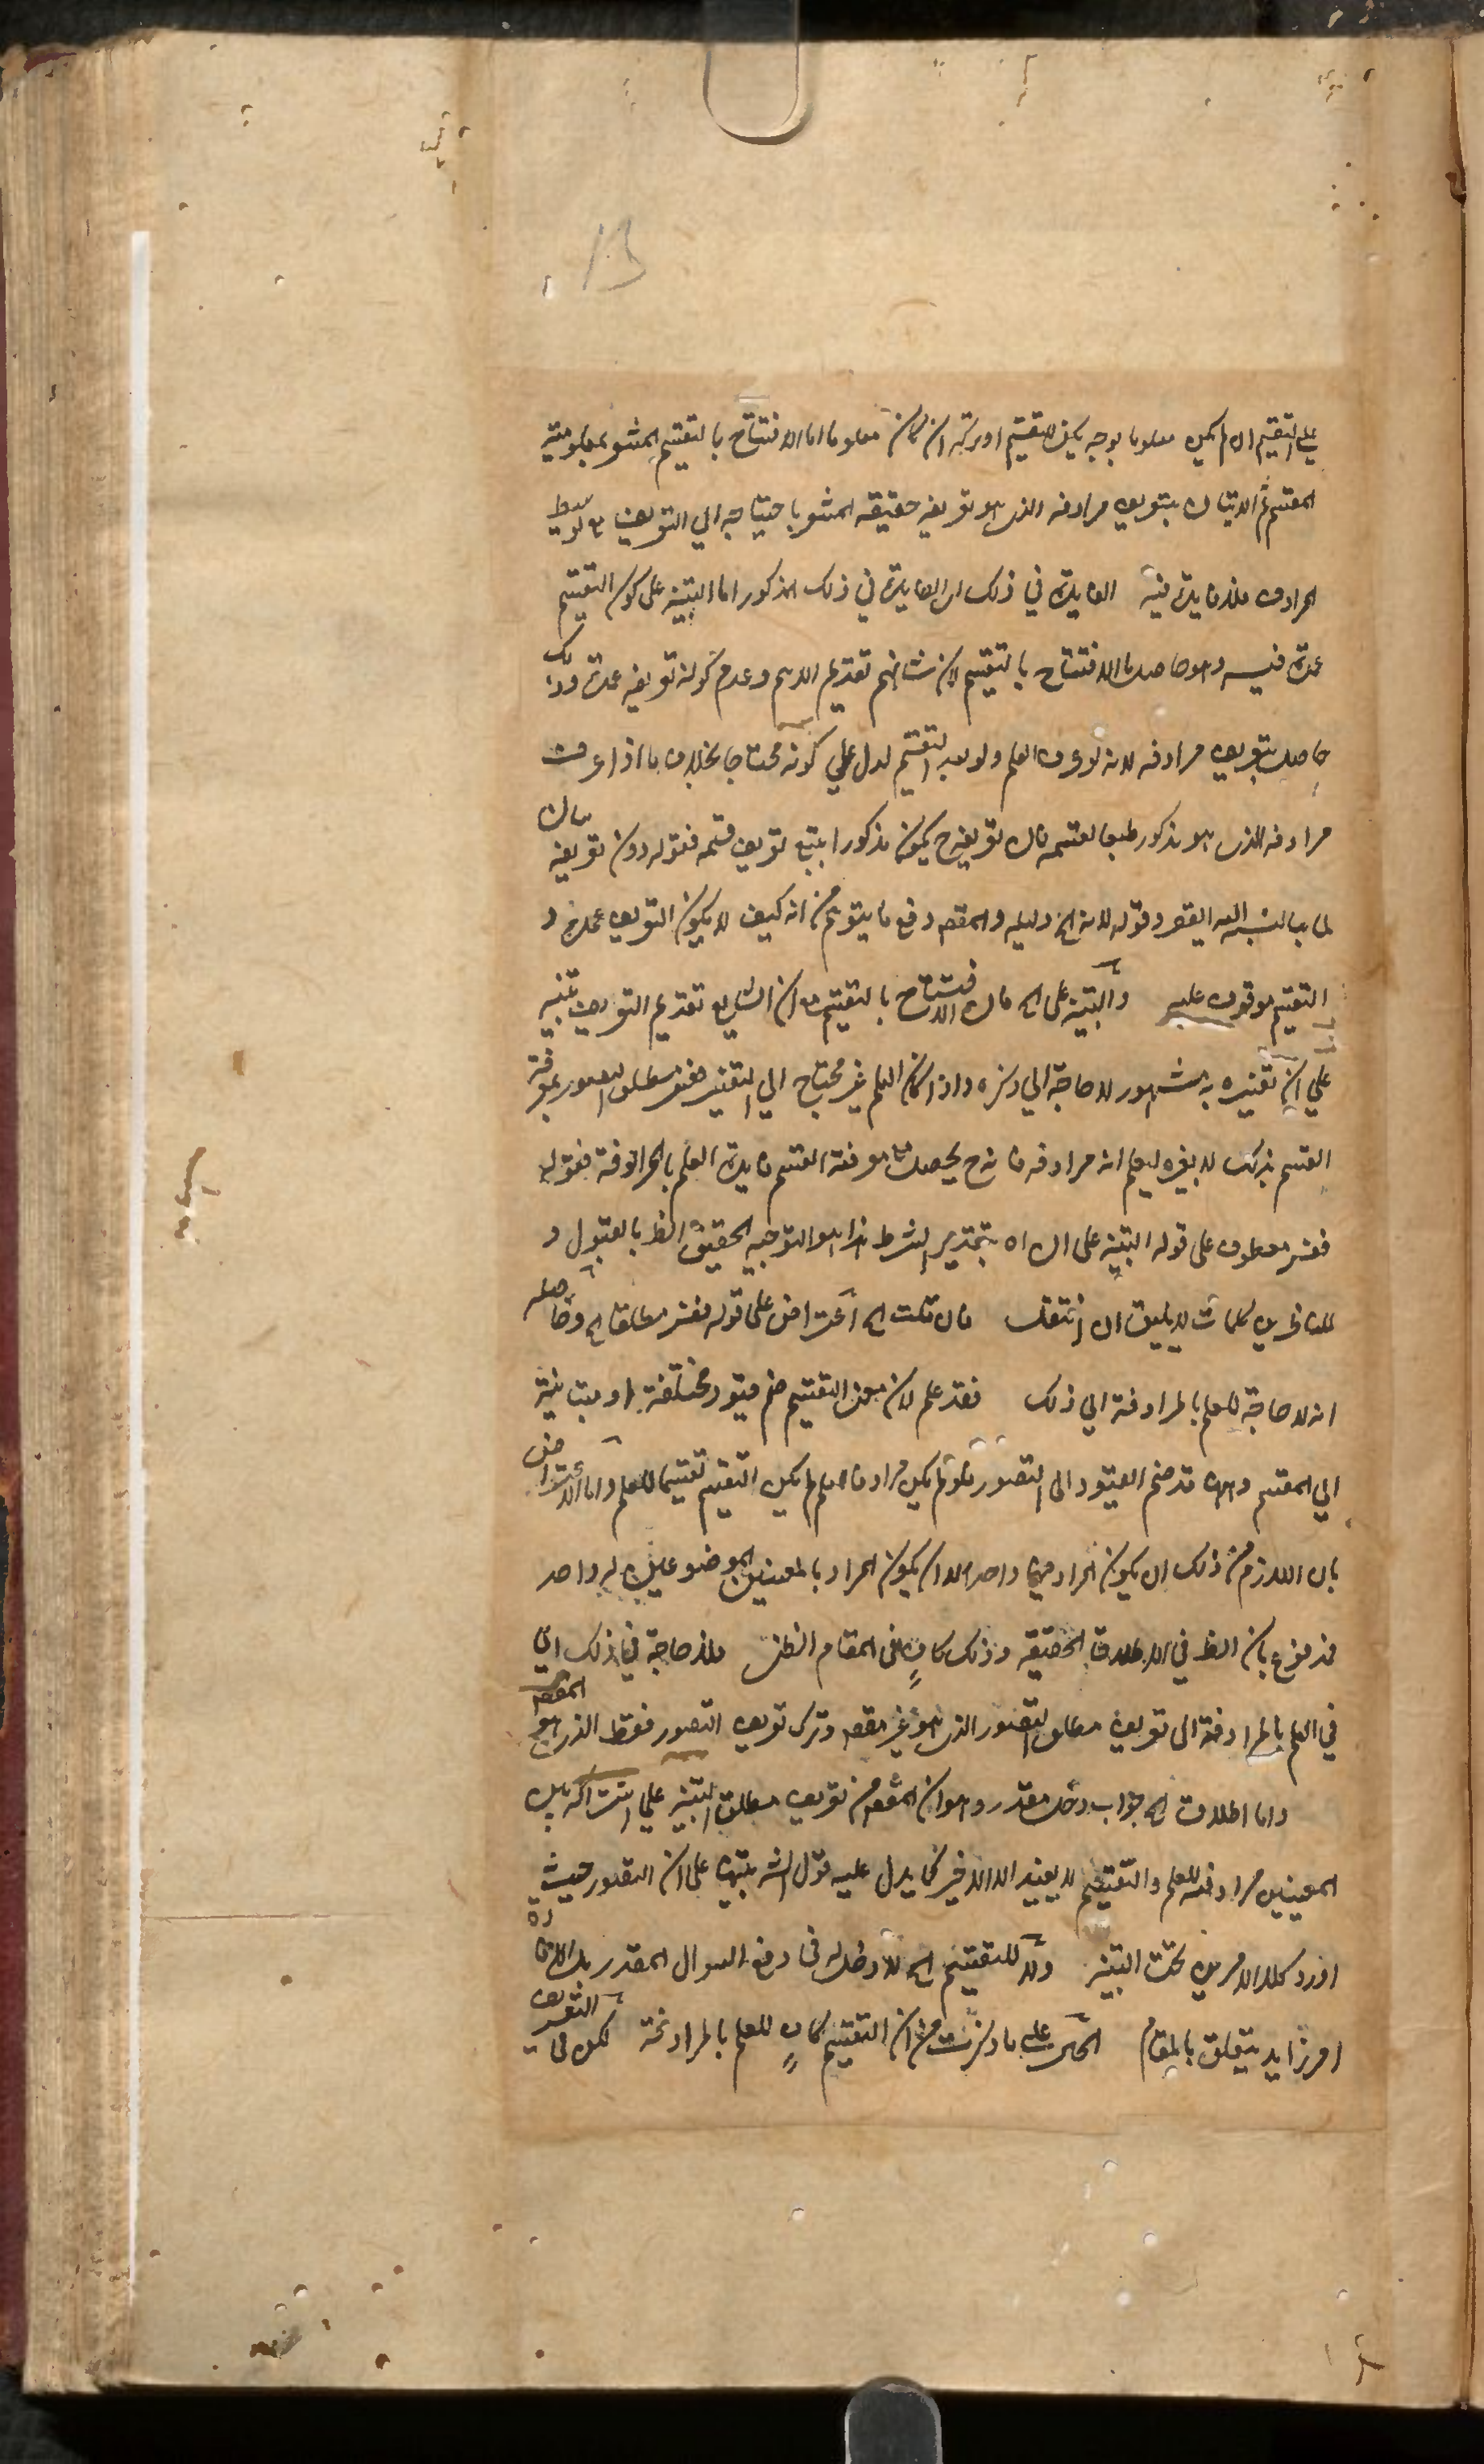 13
على التقسيم ان لم يكن معلوما بوجه يكفي للتقسيم او يتركه ان كان معلوما اما الافتتاح بالتقسيم المشعر بمعلومية
المقسم ثم الاتيان بتعريف مرادفه الذى هو تعريفه حقيقة المشعر باحتياجه الي التعريف مع توسيط
المرادف فلا فايدة فيه الفايدة في ذلك اى الفايدة في ذلك المذكور اما التنبيه على كون التقسيم
عمدة فيه وهو حاصل بالافتتاح بالتقسيم لان شانهم تقديم الاهم وعدم كون تعريفه عمدة وذلك
حاصل بتعريف مرادفه لانه لو عرف العلم ولو بعد التقسيم لدل على كونه محتاجا بخلاف ما اذا عرف
مرادفه الذى هو مذكور طبعا لقسمه فان تعريفه ح يكون مذكورا بتبع تعريف قسمه فقوله دون تعريفه بيان
لما بالنسبة اليه القصر وقوله لانه الخ دليله والمقصد دفع ما يتوهم من انه كيف لا يكون التعريف عمدة و
التقسيم موقوف عليه والتنبيه على الخ فان الافتتاح بالتقسيم مع ان الشايع تقديم التعريف تنبيه
علي ان تفسيره مشهور لا حاجة الي ذكره واذا كان العلم غير محتاج الي التفسير ففسر مطلق التصور بمعرفة
القسم بذلك لا بغيره ليعلم انه مرادفه فانه ح يحصل مع معرفة القسم فايدة العلم بالمرادفة فقوله
ففسر معطوف على قوله التنبيه على ان اه بتقدير الشرط هذا هو التوجيه الحقيق الظ بالقبول و
للناظرين كلمات لا يليق ان تنقل فان قلت الخ اعتراض على قوله ففسر مطلقا الخ وحاصله
انه لا حاجة للعلم بالمرادفة الي ذلك فقد علم لان معنى التقسيم ضم قيود مختلفة او متباينة
الي المقسم وههنا قد ضم القيود الى التصور فلو لم يكن مرادفا للعلم لم يكن التقسيم تقسيما للعلم واما الاعتراض
بان اللازم من ذلك ان يكون المراد منهما واحد الا ان يكون المراد بالمعنيين الموضوعين له واحد
فمدفوع بان الظ في الاطلاق الحقيقة وذلك كاف في المقام الظنى فلا حاجة في ذلك الي
في العلم بالمرادفة الى تعريف مطلق التصور الذى هو غير مقصد وترك تعريف التصور فقط الذى هو المقصد
واما اطلاق الخ جواب دخل مقدر وهو ان المقصد من تعريف مطلق التنبيه علي اشتراكه بين
المعنيين مرادفته للعلم والتقسيم لا يفيد الا الاخير كما يدل عليه قول الش تنبيها على ان التصور حيث
اورد كلا الامرين تحت التنبيه ولا للتقسيم الخ لا دخل له فى دفع السوال المقدر بل الافادة
امر زايد يتعلق بالمقام الحكم على ما ذكرت من ان التقسيم كاف للعلم بالمرادفة لكن في التعريف